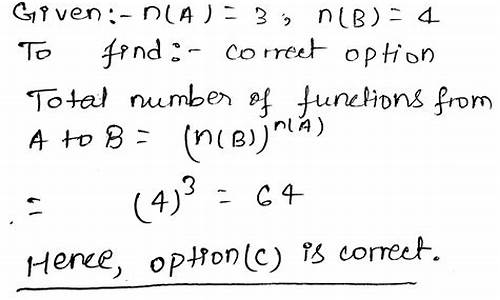 Given:- n(A) = 3, n(B) = 4
To find:- correct option
Total number of functions from
A to B = (n(B))^n(A)
= (4)^3 = 64
Hence, option(c) is correct.